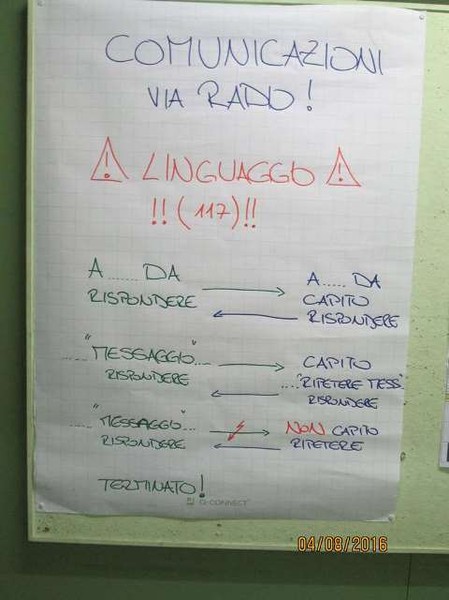 COMUNICAZIONI
VIA RADIO!
! LINGUAGGIO !
!! (117) !!
A ...... DA
RISPONDERE
A ..... DA
CAPITO
RISPONDERE
..... "MESSAGGIO" ...
RISPONDERE
CAPITO
...."RIPETERE MESS."
RISPONDERE
..."MESSAGGIO"...
RISPONDERE
NON CAPITO
RIPETERE
TERMINATO!
Q-CONNECT
04/08/2016